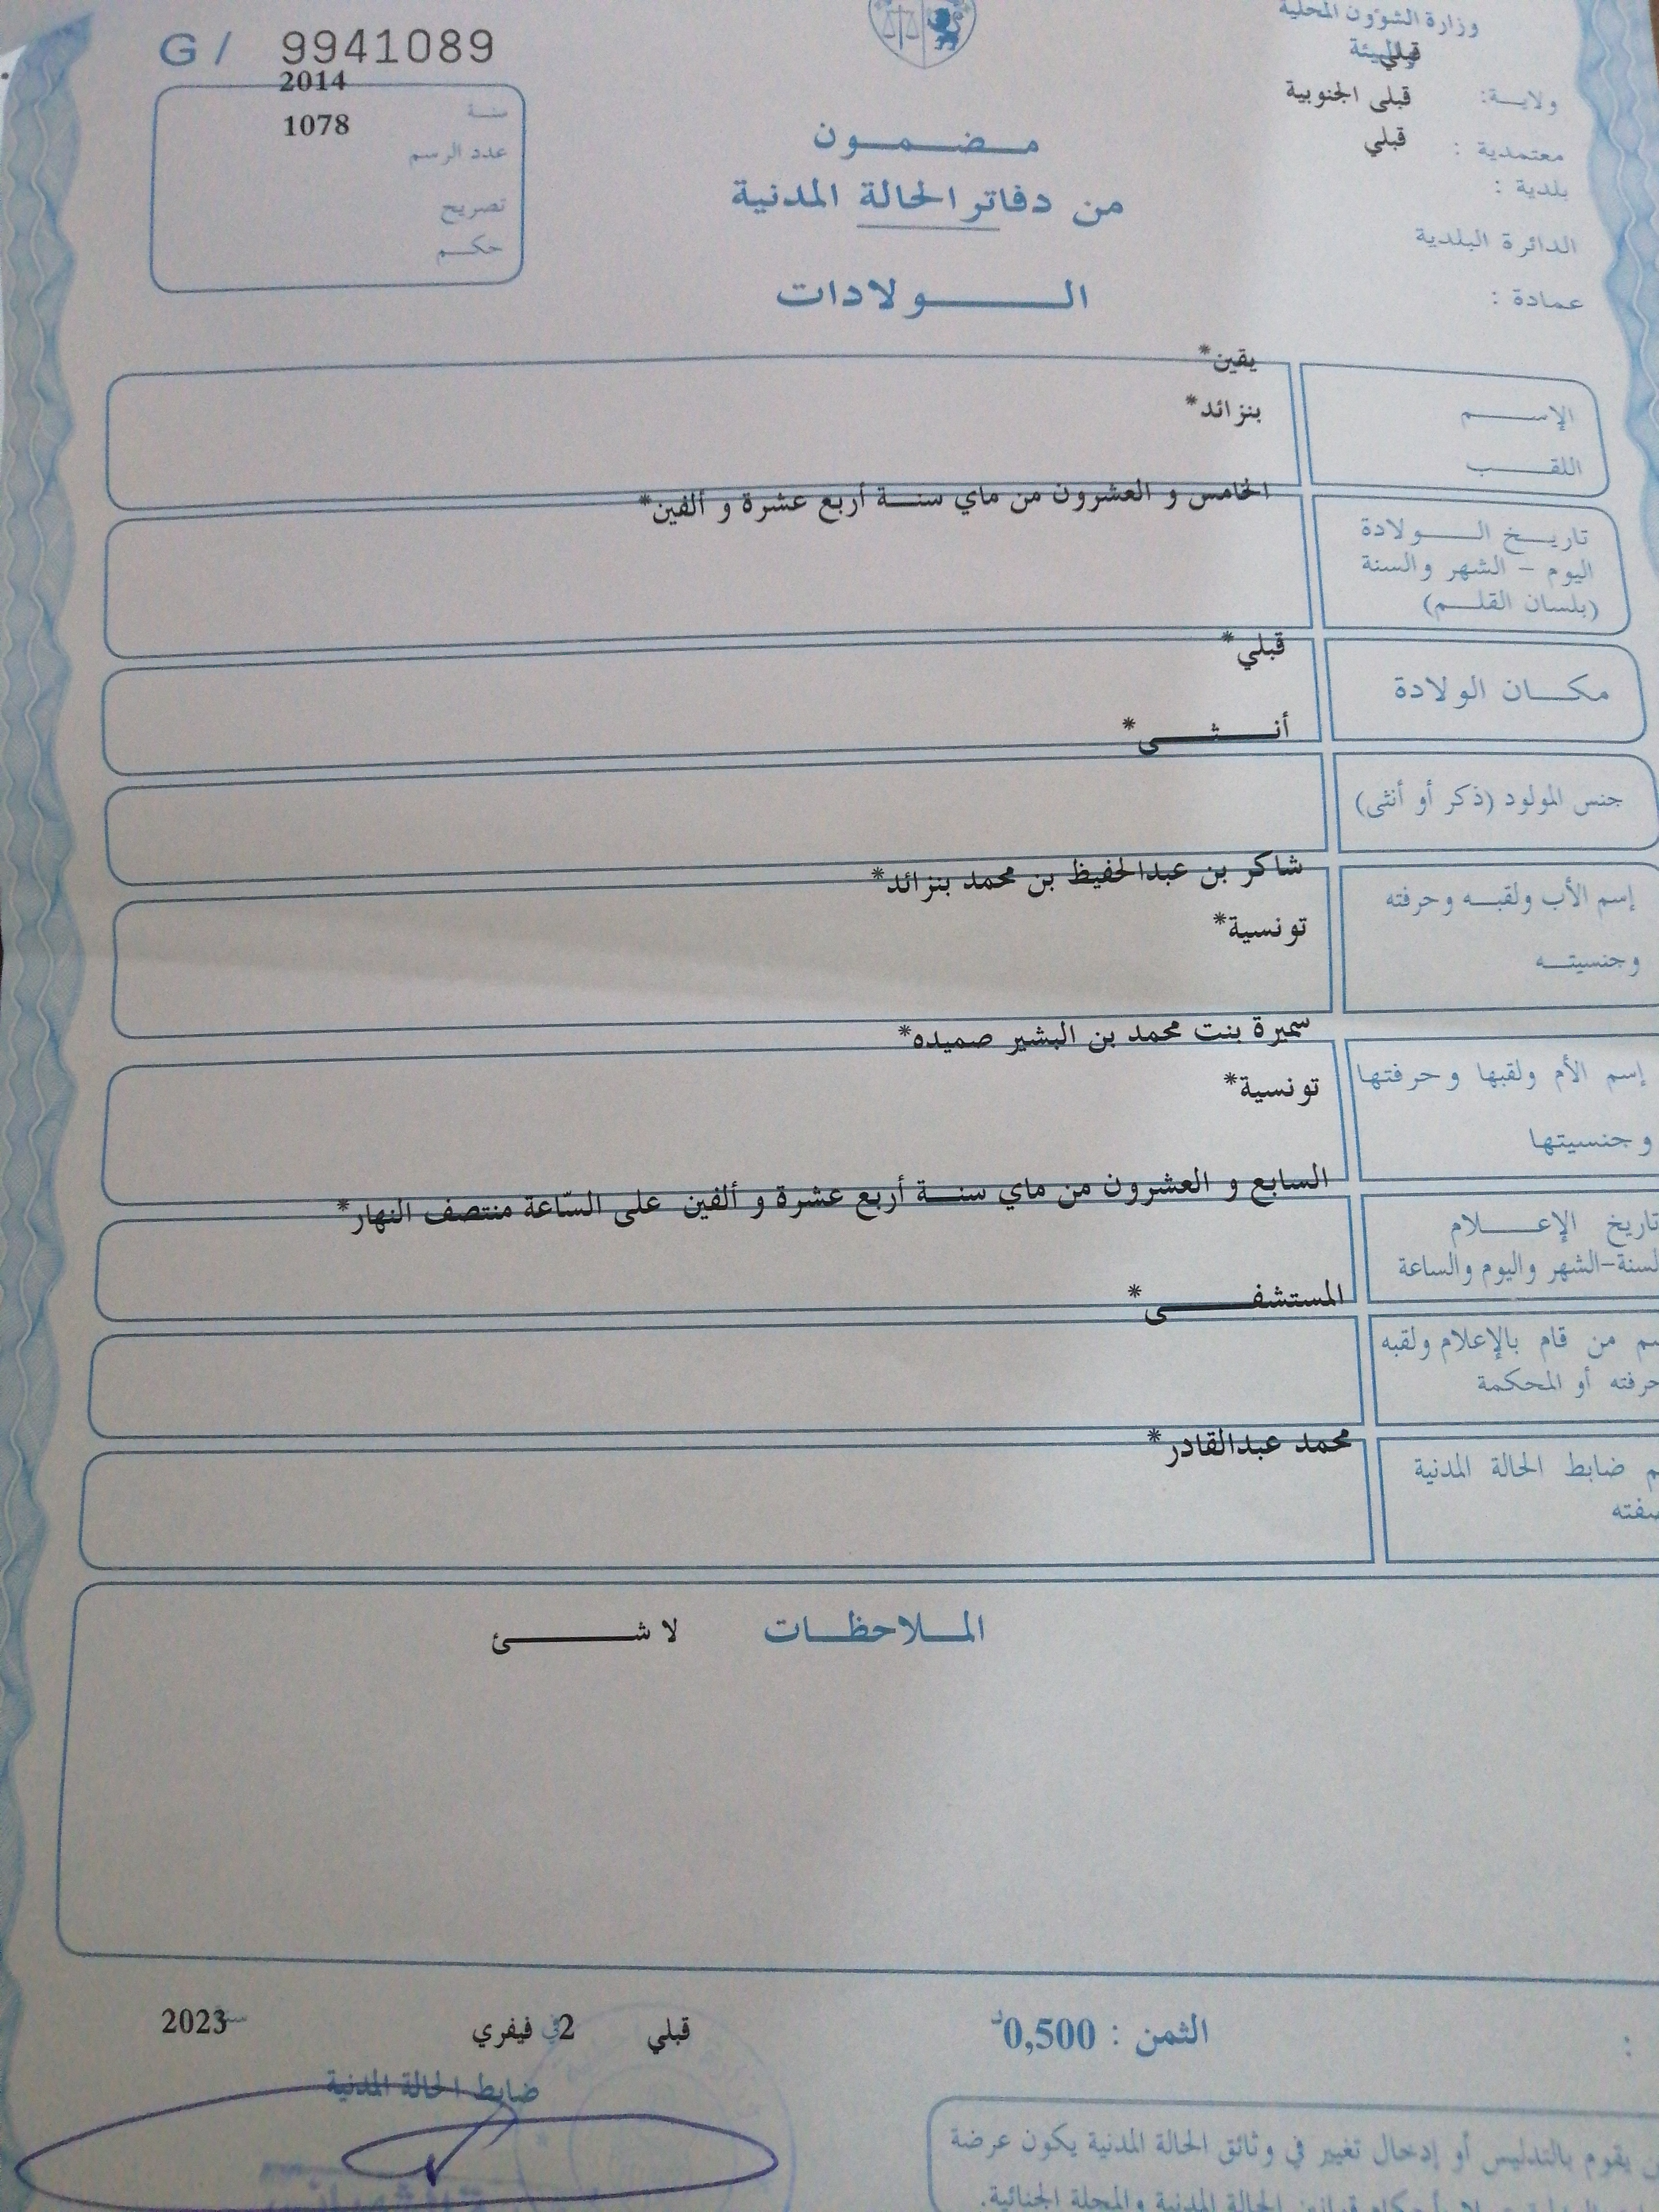 G / 9941089
وزارة الشؤون المحلية
والبيئة
قبلي
ولايــة: قبلى الجنوبية
معتمدية : قبلي
بلدية :
الدائرة البلدية
عمادة :
سنـة 2014
عدد الرسم 1078
تصريح
حكـم
مـضـمـون
من دفاتر الحالة المدنية
الـولادات
الإسـم يقين*
اللقـب بنزائد*
تاريـخ الـولادة
اليوم - الشهر والسنة
(بلسان القلـم)
الخامس و العشرون من ماي سنـة أربع عشرة و ألفين*
مكـان الولادة قبلي*
جنس المولود (ذكر أو أنثى) أنـثـى*
إسم الأب ولقبـه وحرفته شاكر بن عبدالحفيظ بن محمد بنزائد*
وجنسيتـه تونسية*
إسم الأم ولقبها وحرفتها سميرة بنت محمد بن البشير صميده*
وجنسيتها تونسية*
تاريخ الإعـلام
السنة-الشهر واليوم والساعة
السابع و العشرون من ماي سنـة أربع عشرة و ألفين على السّاعة منتصف النهار*
من قام بالإعلام ولقبه
حرفته أو المحكمة
المستشفـى*
ضابط الحالة المدنية
محمد عبدالقادر*
المـلاحظـات لا شـئ
الثمن : 0,500د
قبلي في 2 فيفري سنة 2023
ضابط الحالة المدنية
يقوم بالتدليس أو إدخال تغيير في وثائق الحالة المدنية يكون عرضة
الحالة المدنية والمجلة الجنائية.